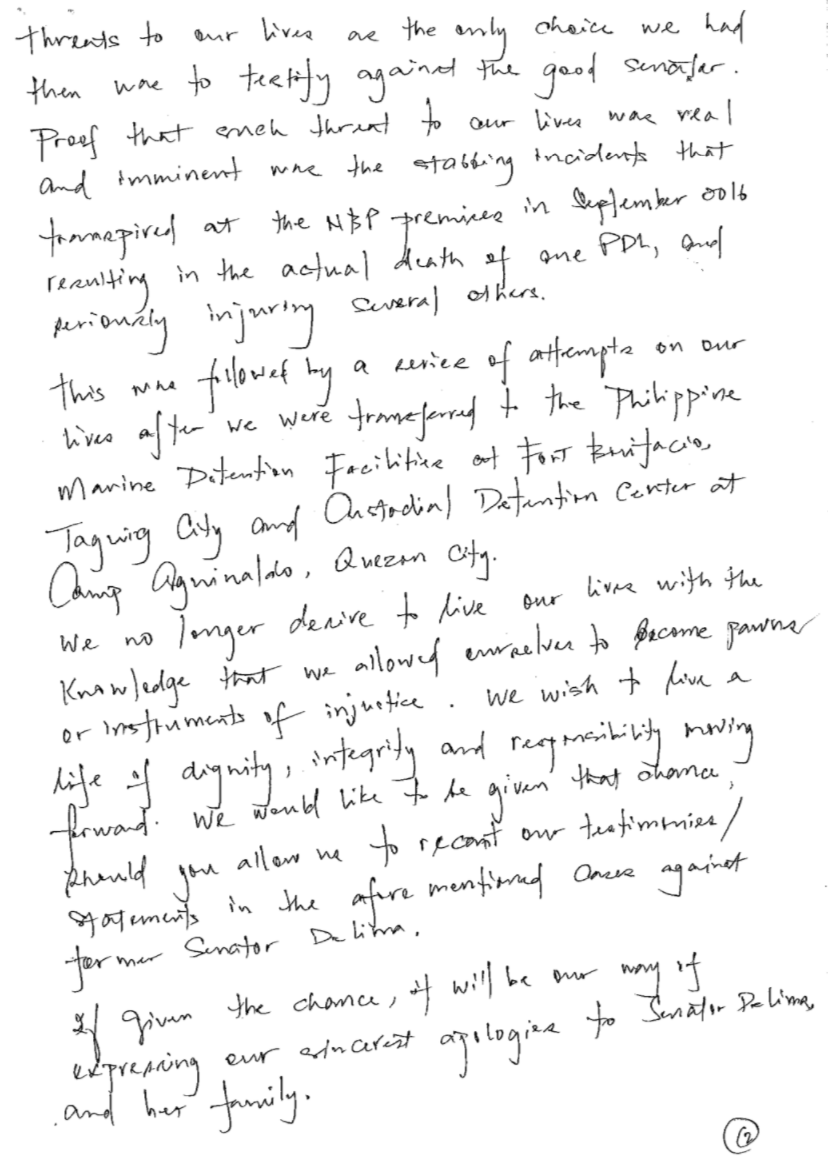 threats to our lives as the only choice we had
then was to testify against the good senator.
Proof that such threat to our lives was real
and imminent was the stabbing incidents that
transpired at the NBP premises in September 2016
resulting in the actual death of one PDL, and
seriously injuring several others.
This was followed by a series of attempts on our
lives after we were transferred to the Philippine
Marine Detention Facilities at Fort Bonifacio,
Taguig City and Custodial Detention Center at
Camp Aguinaldo, Quezon City.
We no longer desire to live our lives with the
knowledge that we allowed ourselves to become pawns
or instruments of injustice. We wish to live a
life of dignity, integrity and responsibility moving
forward. We would like to be given that chance,
should you allow us to recant our testimonies/
statements in the afore mentioned cases against
former Senator De Lima.
If given the chance, it will be our way of
expressing our sincerest apologies to Senator De Lima,
and her family.
12